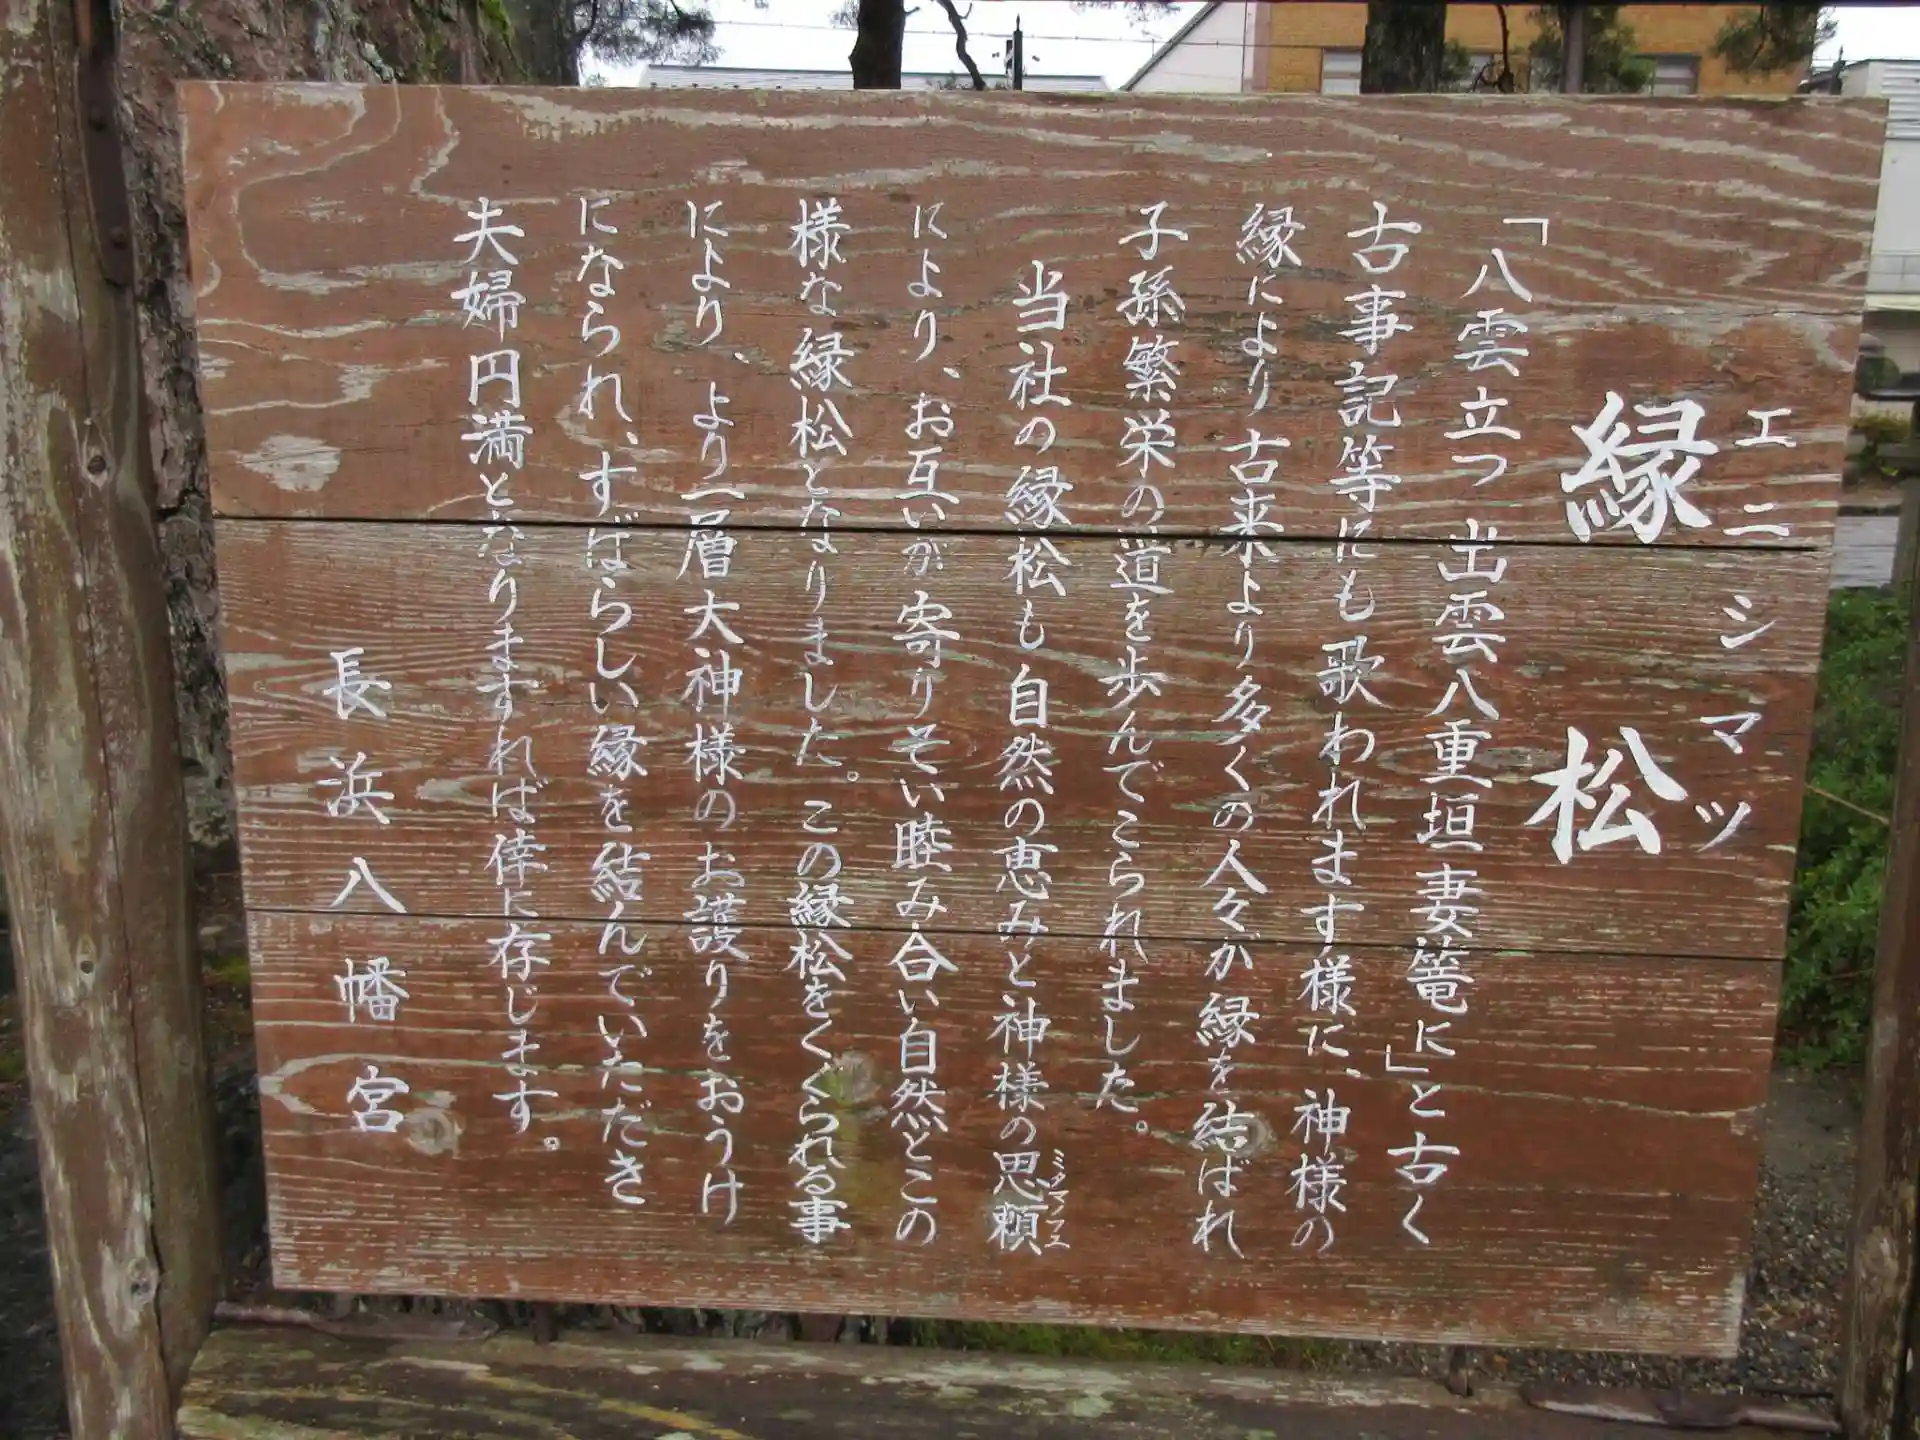 エニシマツ
縁松
「八雲立つ 出雲八重垣妻篭に」と古く
古事記等にも歌われます様に、神様の
縁により古来より多くの人々が縁を結ばれ
子孫繁栄の道を歩んでこられました。
当社の縁松も自然の恵みと神様の思頼
ミタマノフユ
により、お互いが寄りそい睦み合い自然とこの
様な縁松となりました。この縁松をくぐられる事
により、より一層大神様のお護りをおうけ
になられ、すばらしい縁を結んでいただき
夫婦円満となりますれば倖に存じます。
長浜八幡宮